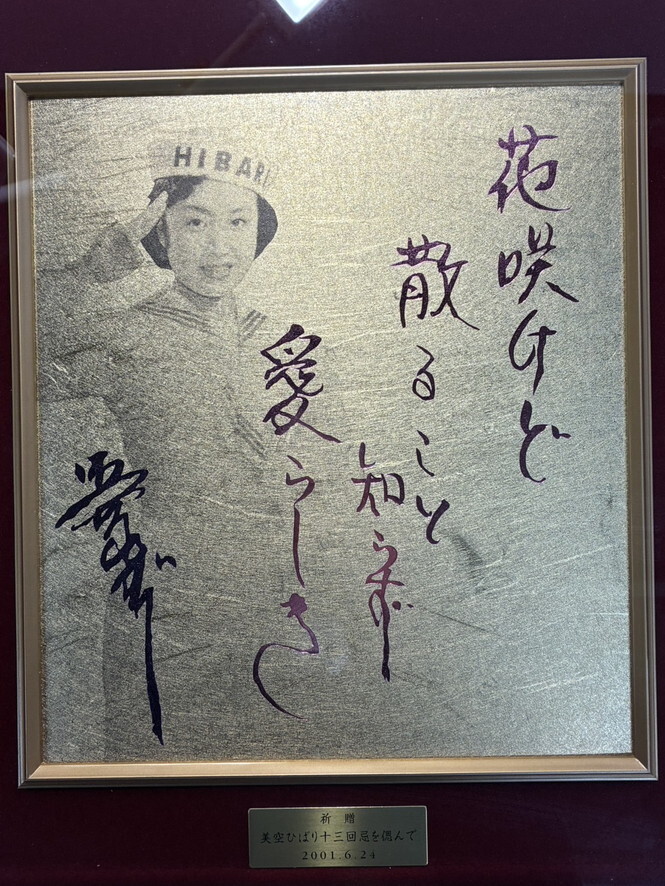 HIBARI
花咲けど
散ること
知らず
愛らしき
祈 贈
美空ひばり十三回忌を偲んで
2001.6.24